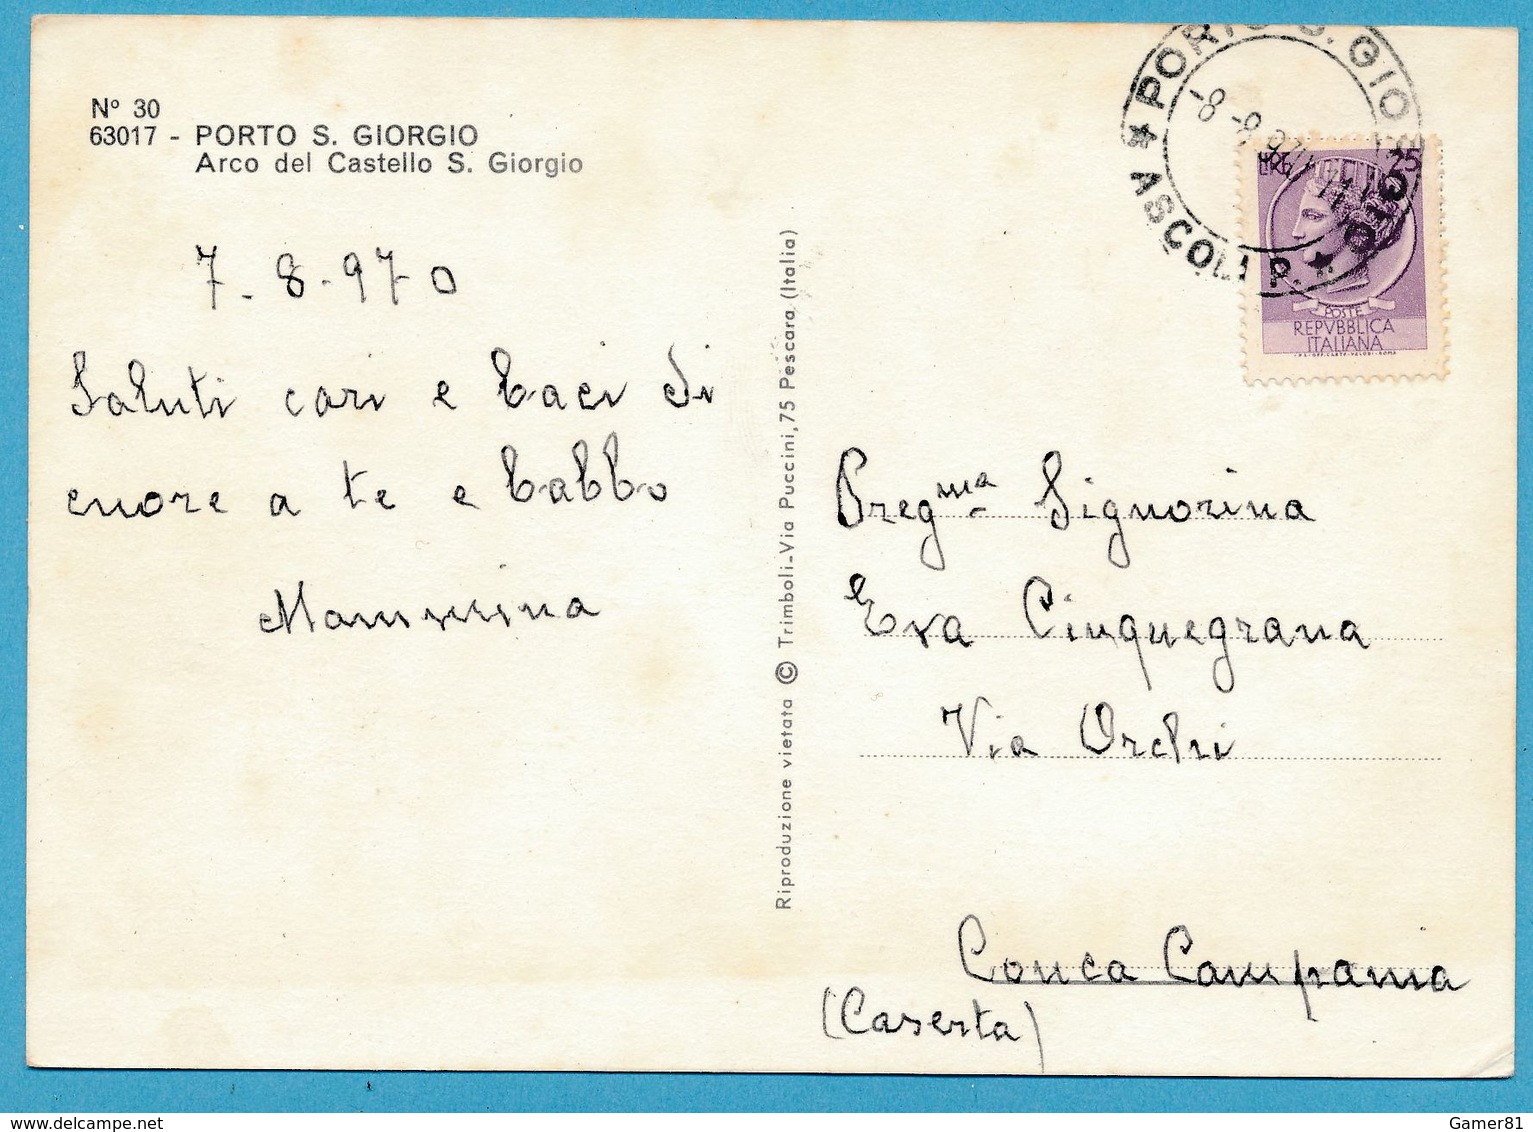 Nº 30
63017 - PORTO S. GIORGIO
Arco del Castello S. Giorgio
7-8-970
Saluti cari e baci di
cuore a te e babbo
Mammina
Riproduzione vietata © Trimboli-Via Puccini, 75 Pescara (Italia)
★ PORTO S. GIORGIO ★ ASCOLI P.
-8-8.97
LIRE 25
POSTE
REPVBBLICA
ITALIANA
I.P.S.-OFF.-CARTE-VALORI-ROMA
Preg.ma Signorina
Eva Cinquegrana
Via Orchi
Conca Campania
(Caserta)
Gamer81
delcampe.net